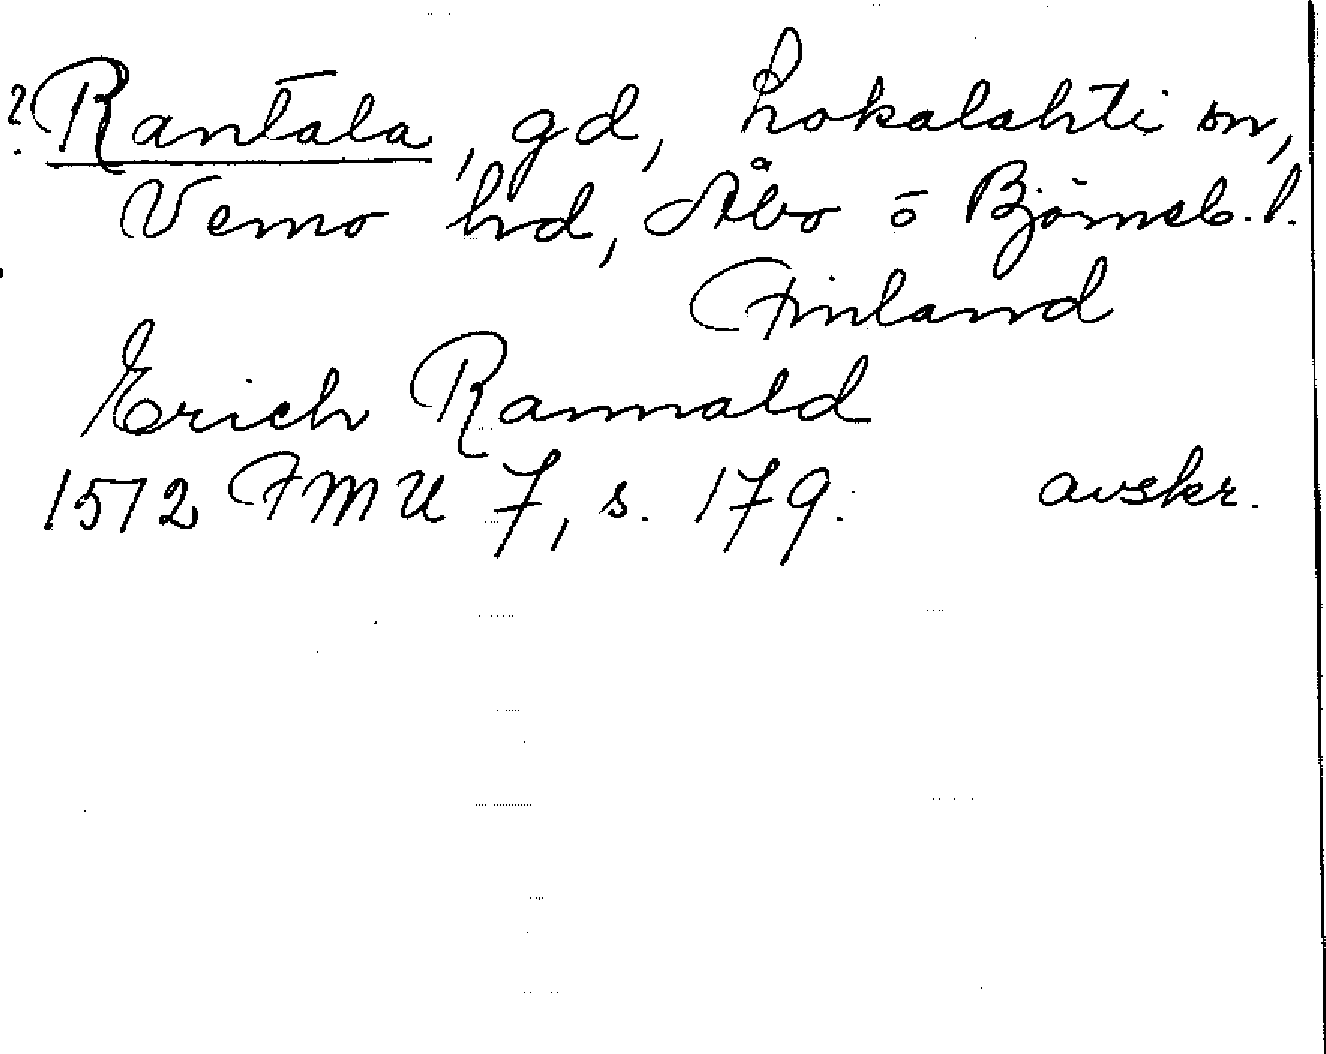 ? Rantala, gd, Lokalahti sn,
Vemo hd, Åbo o Björneb. l.
Finland
Erich Rannald
1512 FMU 7, s. 179. avskr.